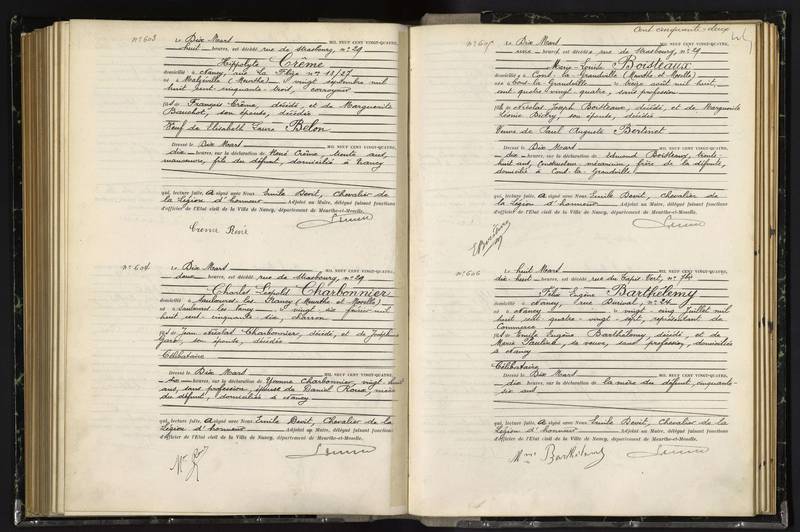 N° 603
Le Dix Mars MIL NEUF CENT VINGT-QUATRE,
huit heures, est décédé rue de Strasbourg, n° 29
Hippolyte Crême
domicilié à Nancy, rue La Flize n°s 18/27
né à Malzéville (Meurthe) le vingt septembre mil
huit cent cinquante trois, corroyeur
fils de François Crême, décédé, et de Marguerite
son épouse, décédée
Veuf de Elisabeth Laure Belon
Dressé le Dix Mars MIL NEUF CENT VINGT-QUATRE,
dix heures, sur la déclaration de René Crême, trente ans,
manœuvre, fils du défunt, domicilié à Nancy
qui, lecture faite, a signé avec Nous Emile Devit, Chevalier de
la Légion d'honneur Adjoint au Maire, délégué faisant fonctions
d'officier de l'Etat civil de la Ville de Nancy, département de Meurthe-et-Moselle.
Creme René
N° 604
Le Dix Mars MIL NEUF CENT VINGT-QUATRE,
deux heures, est décédé rue de Strasbourg, n° 29
Charles Léopold Charbonnier
domicilié à Saulxures les Nancy (Meurthe et Moselle)
né à Saulxures les Nancy le vingt six février mil
huit cent cinquante six, charron
fils de Jean Nicolas Charbonnier, décédé, et de Joséphine
son épouse, décédée
Célibataire
Dressé le Dix Mars MIL NEUF CENT VINGT-QUATRE,
dix heures, sur la déclaration de Yvonne Charbonnier, vingt huit
ans, sans profession, épouse de Daniel Roux, nièce
du défunt, domiciliée à Nancy
qui, lecture faite, a signé avec Nous Emile Devit, Chevalier de la
Légion d'honneur Adjoint au Maire, délégué faisant fonctions
d'officier de l'Etat civil de la Ville de Nancy, département de Meurthe-et-Moselle.
Cent cinquante-deux
N° 605
Le Dix Mars MIL NEUF CENT VINGT-QUATRE,
heures, est décédée rue de Strasbourg, n° 29
Marie Louise Boisteaux
domiciliée à Cons la Grandville (Meurthe et Moselle)
née à Cons la Grandville le treize août mil huit
cent quatre vingt quatre, sans profession
fille de Nicolas Joseph Boisteaux, décédé, et de Marguerite
Léonie son épouse, décédée
Veuve de Paul Auguste Bertinet
Dressé le Dix Mars MIL NEUF CENT VINGT-QUATRE,
dix heures, sur la déclaration de Edmond Boisteaux, trente
huit ans, Constructeur mécanicien, frère de la défunte,
domicilié à Cons la Grandville
qui, lecture faite, a signé avec Nous Emile Devit, Chevalier de
la Légion d'honneur Adjoint au Maire, délégué faisant fonctions
d'officier de l'Etat civil de la Ville de Nancy, département de Meurthe-et-Moselle.
N° 606
Le huit Mars MIL NEUF CENT VINGT-QUATRE,
dix huit heures, est décédé rue du Tapis Vert, n°
Félix Eugène Barthélemy
domicilié à Nancy, rue n° 24
né à Nancy le vingt-cinq Juillet mil
huit cent quatre-vingt-sept, représentant de
Commerce
fils de Emile Eugène Barthélemy, décédé, et de
Marie sa veuve, sans profession, domiciliée
à Nancy
Célibataire
Dressé le Dix Mars MIL NEUF CENT VINGT-QUATRE,
dix heures, sur la déclaration de la mère du défunt, cinquante-
six ans
qui, lecture faite, a signé avec Nous Emile Devit, Chevalier de la
Légion d'honneur Adjoint au Maire, délégué faisant fonctions
d'officier de l'Etat civil de la Ville de Nancy, département de Meurthe-et-Moselle.
Barthélemy